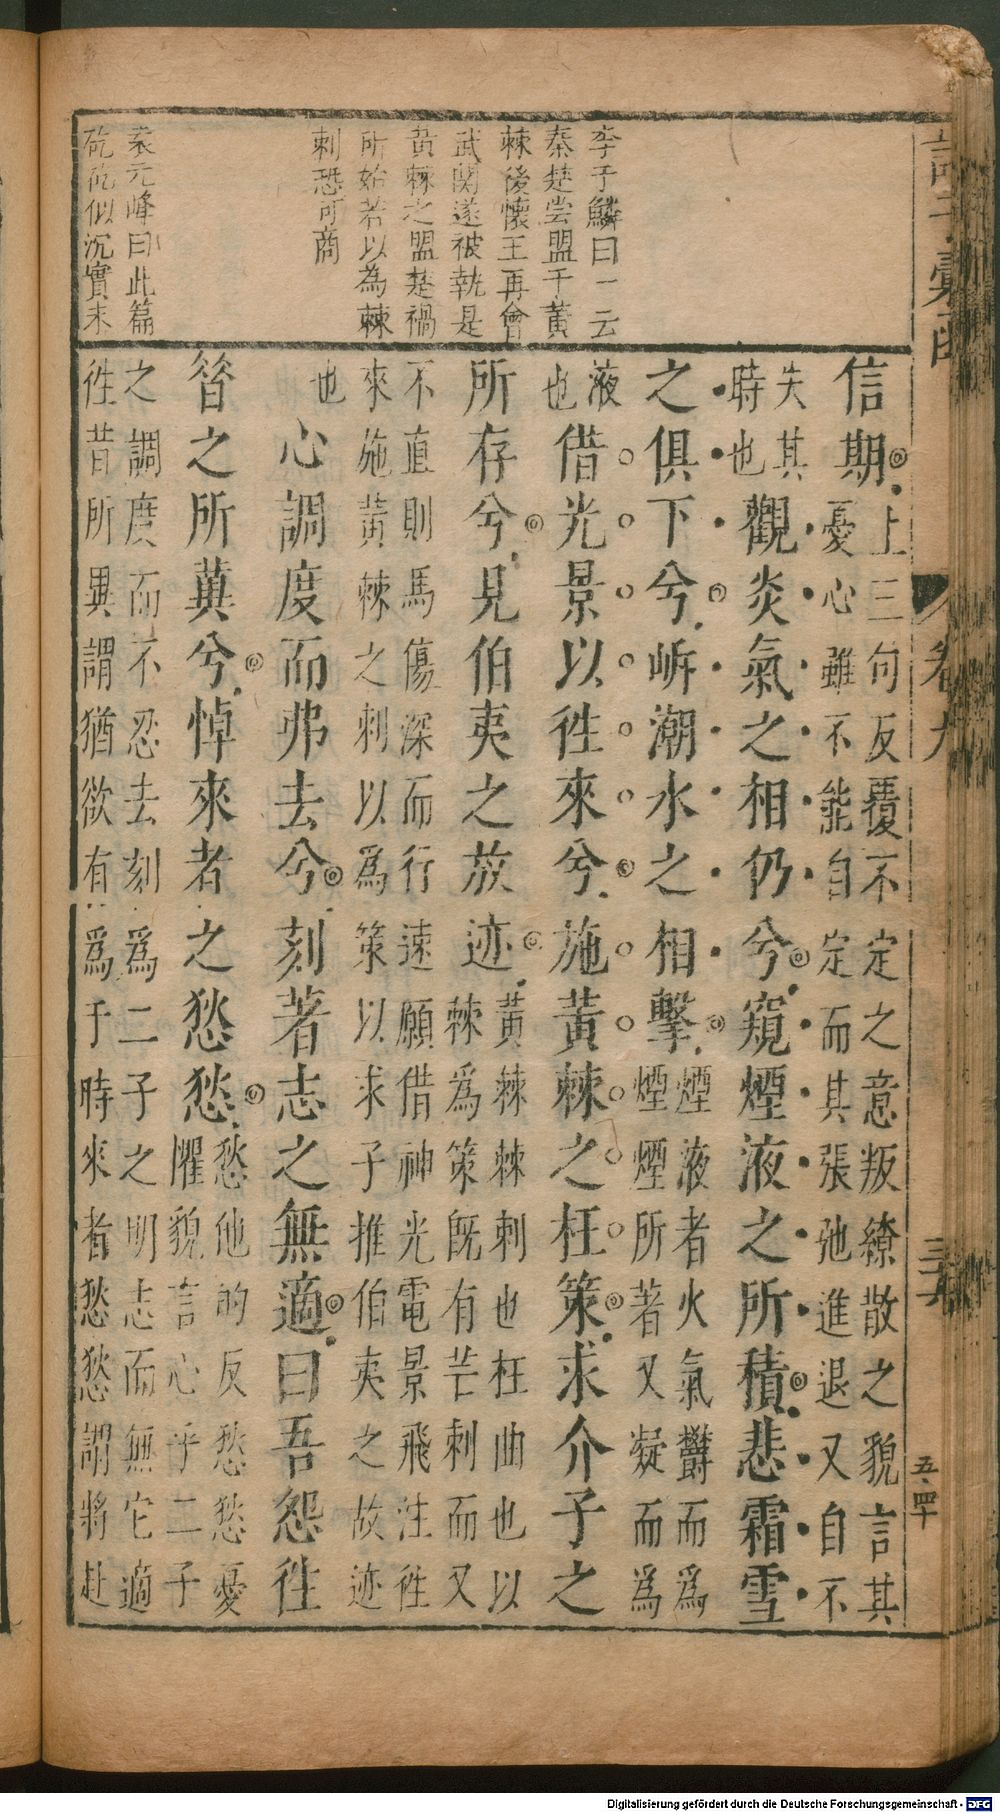 李于鱗曰一云
秦楚嘗盟于黃
棘後懷王再會
武関遂被執是
黃棘之盟楚禍
所始若以為棘
刺恐可商
袁元峰曰此篇
矻矻似沉實末
信期上三句反覆不定之意叛繚散之貌言其
憂心雖不能自定而其張弛進退又自不
失其
時也觀炎氣之相仍兮窺煙液之所積悲霜雪
之俱下兮㟁潮水之相擊煙液者火氣鬱而為
煙煙所著又凝而為
液
也借光景以徃來兮施黃棘之枉策求介子之
所存兮見伯夷之放迹黃棘棘刺也枉曲也以
棘為策既有芒刺而又
不直則馬傷深而行速願借神光電景飛注徃
來施黃棘之刺以為策以求子推伯夷之故迹
也
心調度而弗去兮刻著志之無適曰吾怨徃
昝之所兾兮悼來者之愁愁愁他的反愁愁憂
懼貌言心乎二子
之調度而不忍去刻為二子之明志而無它適
徃昔所兾謂猶欲有為于時來者愁愁謂將赴
卷九
三六
五·四十
Digitalisierung gefördert durch die Deutsche Forschungsgemeinschaft - DFG